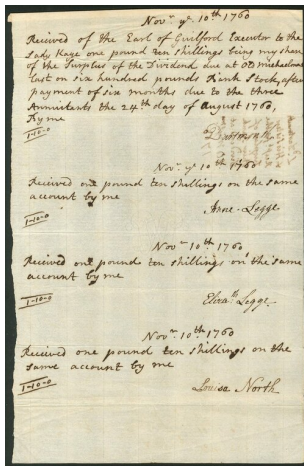 Novr. ye. 10th 1760
Received of the Earl of Guilford Executor to the
Lady Kaye one pound ten shillings being my share
of the Surplus of the Dividend due at Old Michaelmas
last on six hundred pounds Bank Stock, after
payment of six months due to the three
Annuitants the 24th day of August 1760,
By me
1-10-0
Dartmouth
Novr. ye 10th 1760
Received one pound ten shillings on the same
account by me
Anne Legge
1-10-0
Novr. 10th. 1760
Received one pound ten shillings on the same
account by me
Elizath. Legge
1-10-0
Novr. 10th. 1760
Received one pound ten shillings on the
same account by me
1-10-0
Louisa North